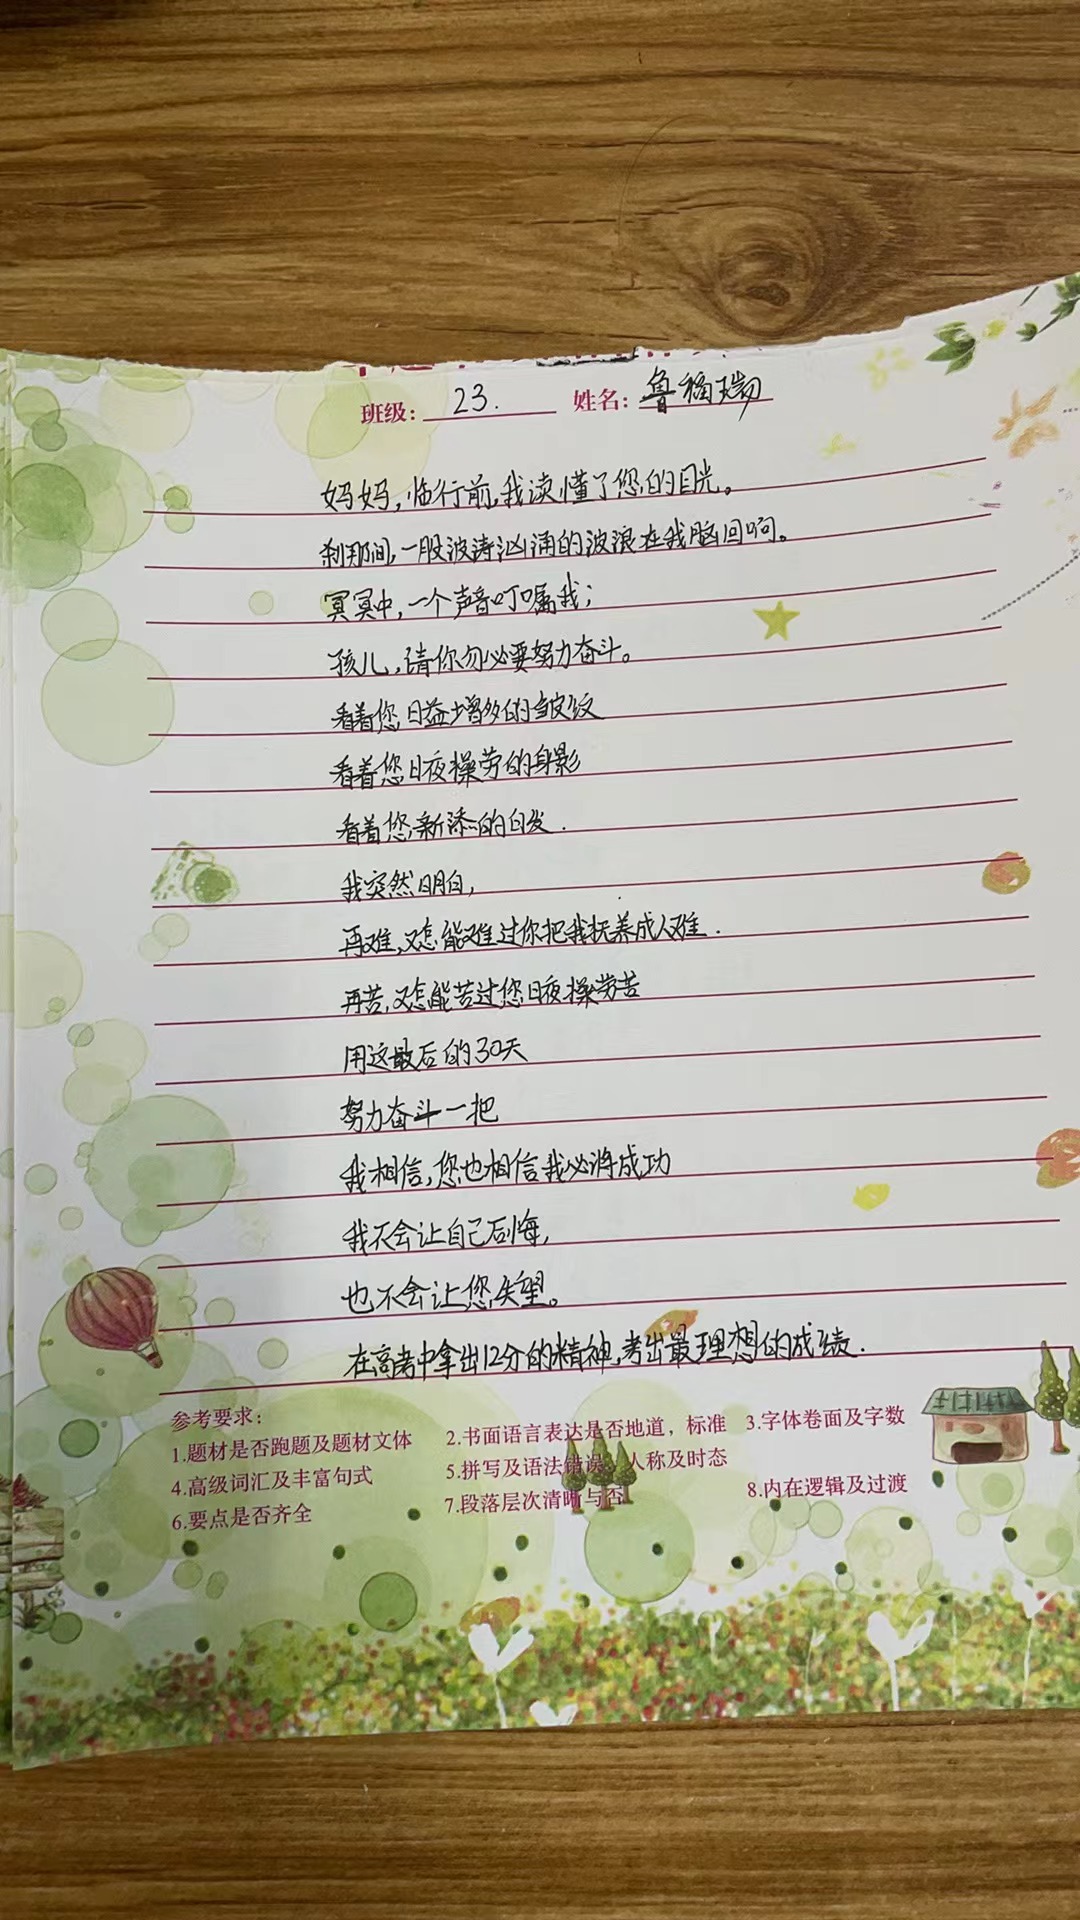 班级： 23. 姓名：鲁福瑞
妈妈，临行前，我读懂了您的目光。
刹那间，一股波涛汹涌的波浪在我脑回响。
冥冥中，一个声音叮嘱我；
孩儿，请你勿必要努力奋斗。
看着您日益增多的皱纹
看着您日夜操劳的身影
看着您新添的白发．
我突然明白，
再难，又怎能难过你把我抚养成人难．
再苦，又怎能苦过您日夜操劳苦
用这最后的30天
努力奋斗一把
我相信，您也相信我必将成功
我不会让自己后悔，
也不会让您失望。
在高考中拿出12分的精神，考出最理想的成绩．
参考要求：
1.题材是否跑题及题材文体 2.书面语言表达是否地道，标准 3.字体卷面及字数
4.高级词汇及丰富句式 5.拼写及语法错误、人称及时态
6.要点是否齐全 7.段落层次清晰与否 8.内在逻辑及过渡